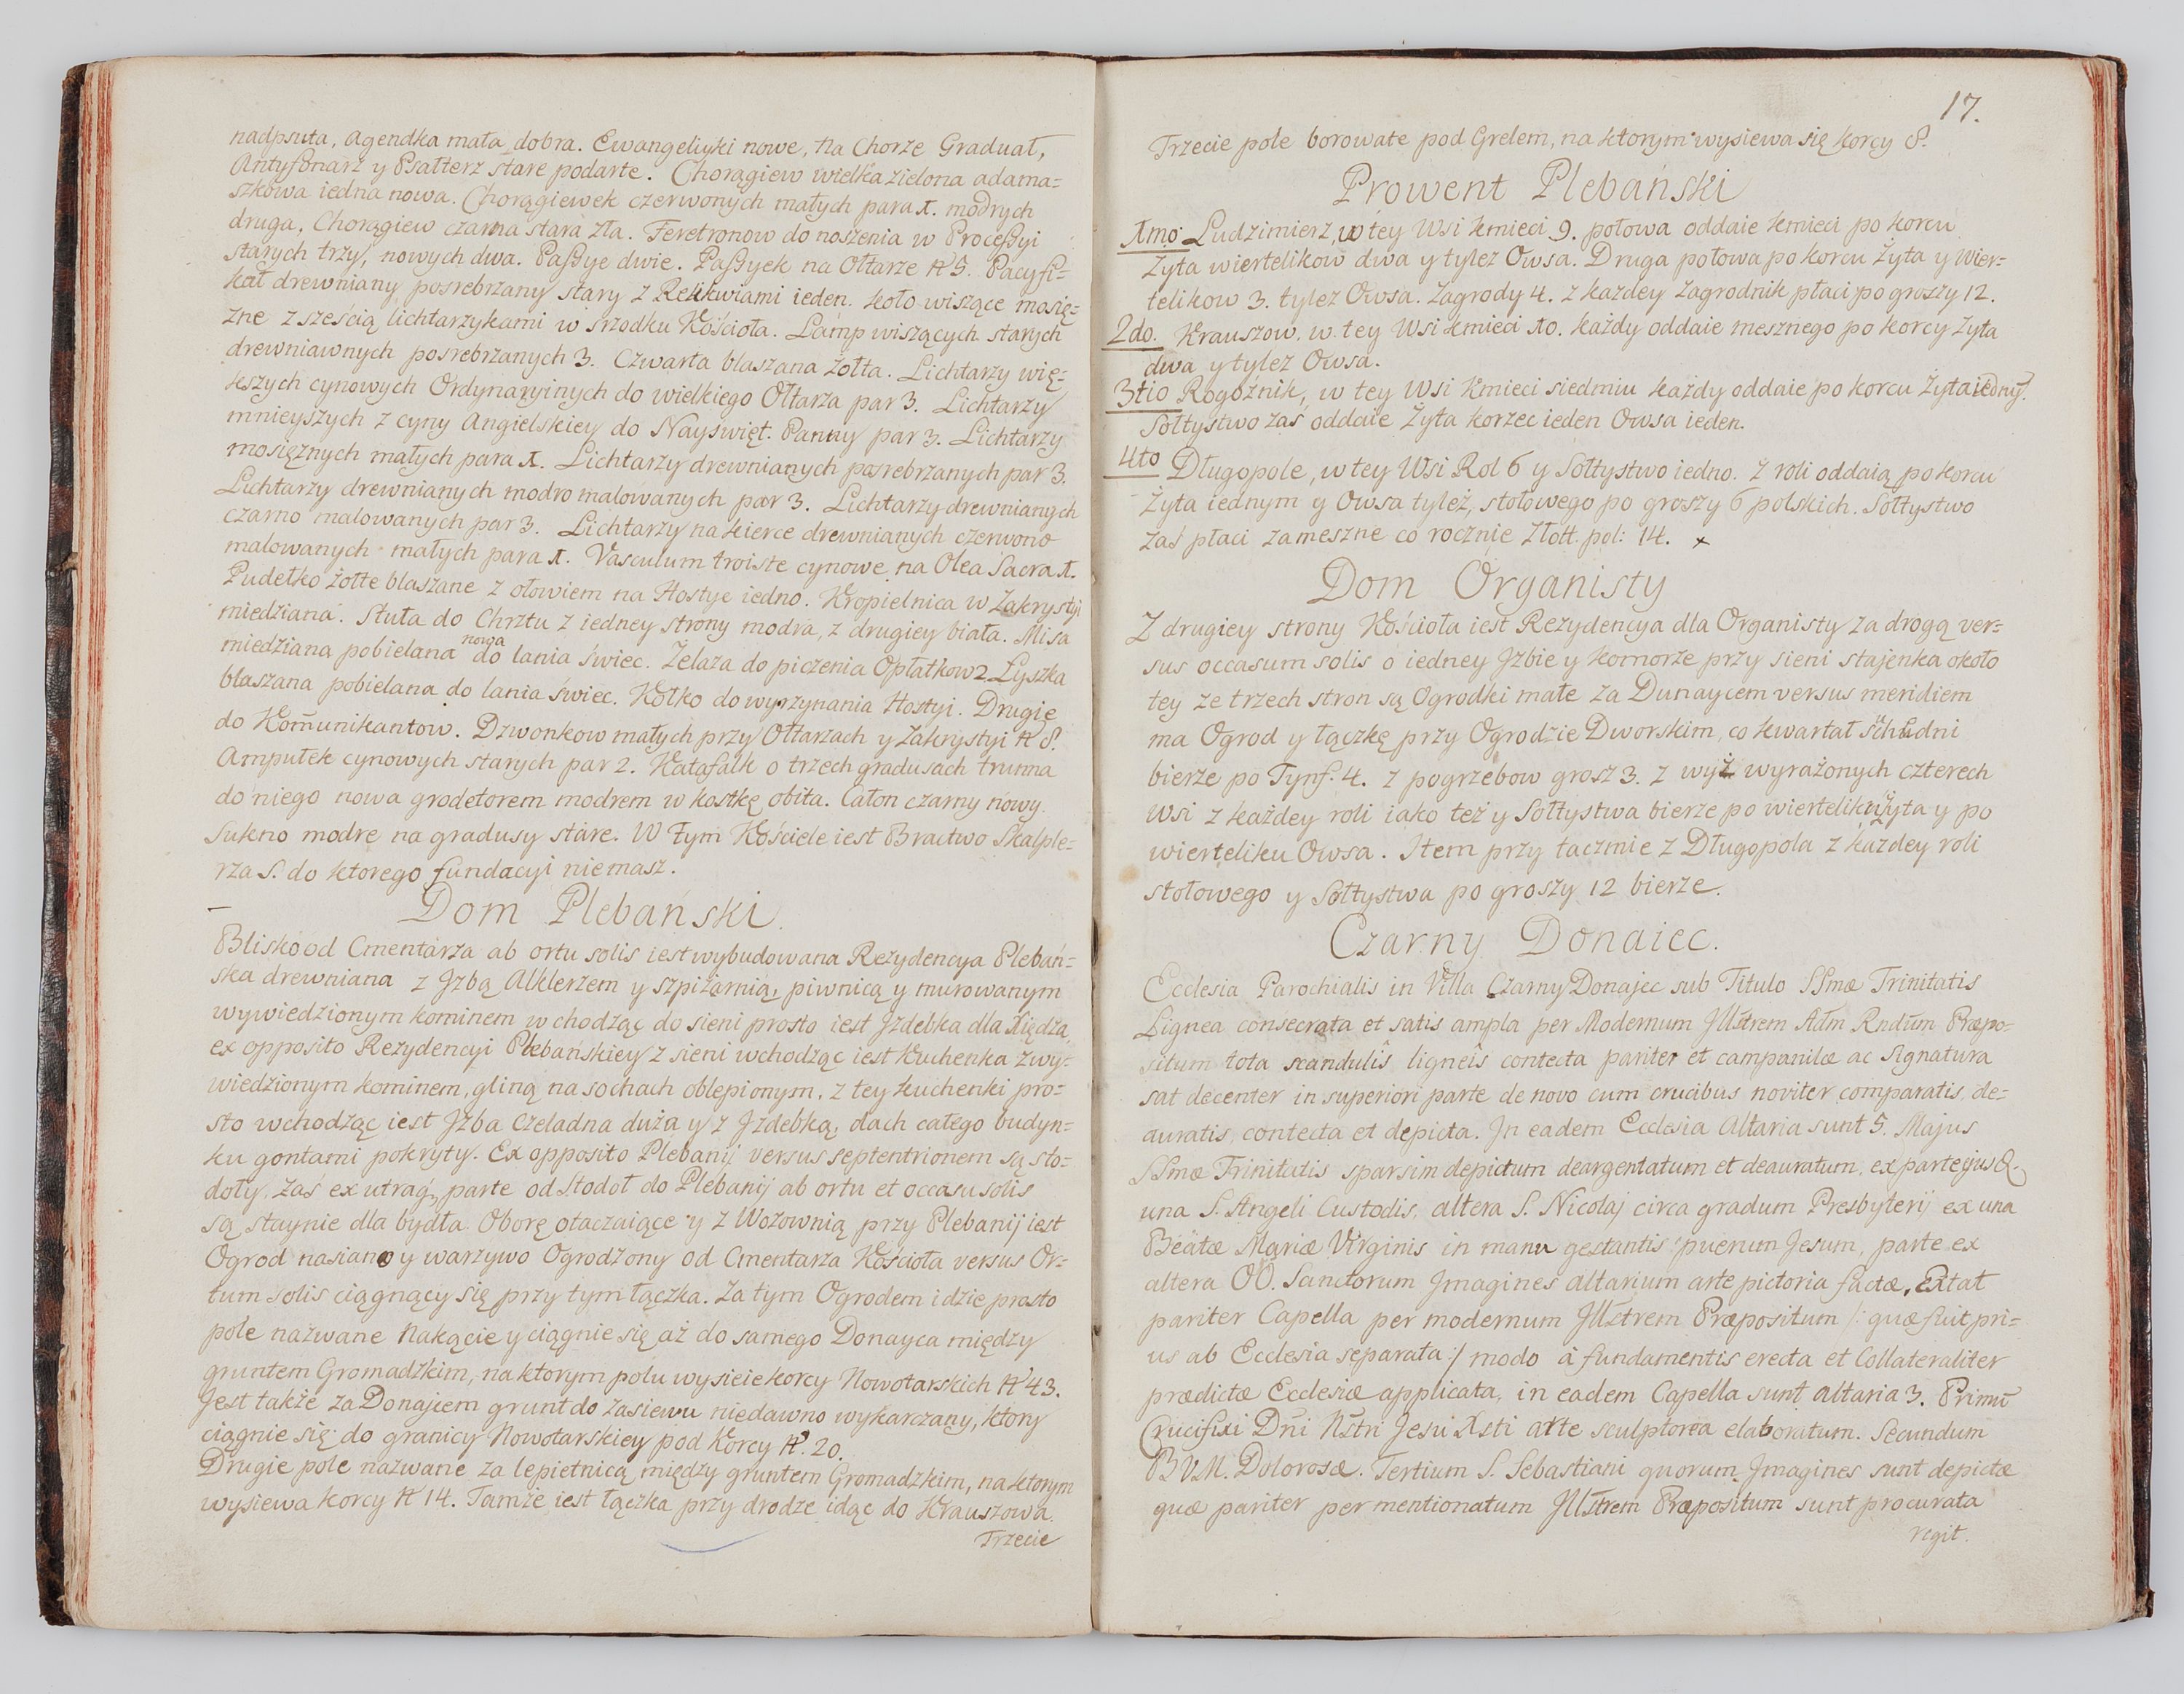 nadpsuta, agendka mała dobra. Ewangeliyki nowe, na Chorze Graduał,
Antyfonarz y Psałterz stare podarte. Chorągiew wielka zielona adama=
szkowa iedna nowa. Chorągiewek czerwonych małych para 1. modrych
druga, Chorągiew czarna stara zła. Feretronow do noszenia w Processyi
starych trzy, nowych dwa. Passye dwie. Passyek na Ołtarze N 5. Pacyfi=
kał drewniany posrebrzany stary z Relikwiami ieden. Koło wiszące mosię=
zne z sześcią lichtarzykami w srzodku Kościoła. Lamp wiszących starych
drewniawnych posrebrzanych 3. Czwarta blaszana żołta. Lichtarzy wię=
kszych cynowych Ordynaryinych do wielkiego Ołtarza par 3. Lichtarzy
mnieyszych z cyny Angielskiey do Nayswięt. Panny par 3. Lichtarzy
mosięznych małych para 1. Lichtarzy drewnianych posrebrzanych par 3.
Lichtarzy drewnianych modro malowanych par 3. Lichtarzy drewnianych
czarno malowanych par 3. Lichtarzy na kierce drewnianych czerwono
malowanych małych para 1. Vasculum troiste cynowe na Olea Sacra 1.
Pudełko żołte blaszane z ołowiem na Hostye iedno. Kropielnica w Zakrystyi
miedziana. Stuła do Chrztu z iedney strony modra, z drugiey biała. Misa
miedziana pobielana nowa do lania świec. Żelaza do piczenia Opłatkow 2. Łyszka
blaszana pobielana do lania świec. Kołko do wyrzynania Hostyi. Drugie
do Kom̃unikantow. Dzwonkow małych przy Ołtarzach y Zakrystyi N 8.
Ampułek cynowych starych par 2. Katafalk o trzech gradusach trunna
do niego nowa grodetorem modrem w kostkę obita. Całon czarny nowy.
Sukno modre na gradusy stare. W tym Kościele iest Bractwo Skalple=
rza S. do ktorego fundacyi niemasz.
Dom Plebański.
Blisko od Cmentarza ab ortu solis iest wybudowana Rezydencya Plebań=
ska drewniana z Jzbą Alklerzem y szpiżarnią, piwnicą y murowanym
wywiedzionym kominem wchodząc do sieni prosto iest Jzdebka dla Xiędza,
ex opposito Rezydencyi Plebańskiey z sieni wchodząc iest Kuchenka z wy=
wiedzionym kominem, gliną na sochach oblepionym, z tey kuchenki pro=
sto wchodząc iest Jzba Czeladna duża y z Jzdebką, dach całego budyn=
ku gontami pokryty. Ex opposito Plebanij versus septentrionem są sto=
doły, zaś ex utraq, parte od Stodoł do Plebanij ab ortu et occasu solis
są staynie dla bydła Oborę otaczaiące y z Wozownią przy Plebanij iest
Ogrod nasiano y warzywo Ogrodzony od Cmentarza Kościoła versus Or=
tum solis ciągnący się przy tym łączka. Za tym Ogrodem idzie prosto
pole nazwane Nakącie y ciągnie się aż do samego Donayca między
gruntem Gromadzkim, na ktorym polu wysieie korcy Nowotarskich N 43.
Jest także za Donajiem grunt do zasiewu niedawno wykarczany, ktory
ciągnie się do granicy Nowotarskiey pod Korcy N. 20.
Drugie pole nazwane za lepietnicą między gruntem Gromadzkim, na ktorym
wysiewa korcy N 14. Tamże iest łączka przy drodze idąc do Krauszowa.
Trzecie
17.
Trzecie pole borowate pod Grelem, na ktorym wysiewa się korcy 8.
Prowent Plebański
1mo Ludzimierz, w tey Wsi kmieci 9. połowa oddaie kmieci po korcu
Żyta wiertelikow dwa y tylez Owsa. Druga połowa po korcu Żyta y Wier=
telikow 3. tylez Owsa. Zagrody 4. z kazdey Zagrodnik płaci po groszy 12.
2do. Krauszow. w tey Wsi kmieci 10. każdy oddaie mesznego po korcy Zyta
dwa y tylez Owsa.
3tio Rogoźnik, w tey Wsi Kmieci siedmiu każdy oddaie po korcu Żyta iednỹ.
Sołtystwo zaś oddaie Żyta korzec ieden Owsa ieden.
4to Długopole, w tey Wsi Rol 6 y Sołtystwo iedno. Z roli oddaią po korcu
Żyta iednym y Owsa tyleż, stołowego po groszy 6 polskich. Sołtystwo
zaś płaci zameszne co rocznie Złott. pol: 14. x
Dom Organisty
Z drugiey strony Kościoła iest Rezydencya dla Organisty za drogą ver=
sus occasum solis o iedney Jzbie y komorze przy sieni stajenka około
tey ze trzech stron są Ogrodki małe za Dunaycem versus meridiem
ma Ogrod y łączkę przy Ogrodzie Dworskim, co kwartał suchedni
bierze po Tynf. 4. z pogrzebow grosz 3. z wyż wyrażonych czterech
Wsi z każdey roli iako też y Sołtystwa bierze po wierteliku żyta y po
wierteliku Owsa. Item przy tacznie z Długopola z każdey roli
stołowego y Sołtystwa po groszy 12 bierze.
Czarny Donaiec.
Ecclesia Parochialis in Villa Czarny Donajec sub Titulo SSmæ Trinitatis
Lignea consecrata et satis ampla per Modernum Jllstrem Adm Rndum Præpo=
situm tota scandulis ligneis contecta pariter et campanilæ ac Signatura
sat decenter in superiori parte de novo cum crucibus noviter comparatis, de=
auratis, contecta et depicta. Jn eadem Ecclesia Altaria sunt 5. Majus
SSmæ Trinitatis sparsim depictum deargentatum et deauratum, ex parte ejus &
una S. Angeli Custodis, altera S. Nicolaj circa gradum Presbyterij ex una
Beätæ Mariæ Virginis in manu gestantis puerum Jesum, parte ex
altera OO. Sanctorum Jmagines altarium arte pictoria factæ, Extat
pariter Capella per modernum Jllstrem Præpositum /: quæ fuit pri=
us ab Ecclesia separata :/ modo à fundamentis erecta et Collateraliter
prædictæ Ecclesiæ applicata, in eadem Capella sunt altaria 3. Primũ
Crucifixi Dni Nstri Jesu Xsti arte sculptorea elaboratum. Secundum
B.V.M. Dolorosæ. Tertium S. Sebastiani quorum Jmagines sunt depictæ
quæ pariter per mentionatum Jllstrem Præpositum sunt procurata
regit.